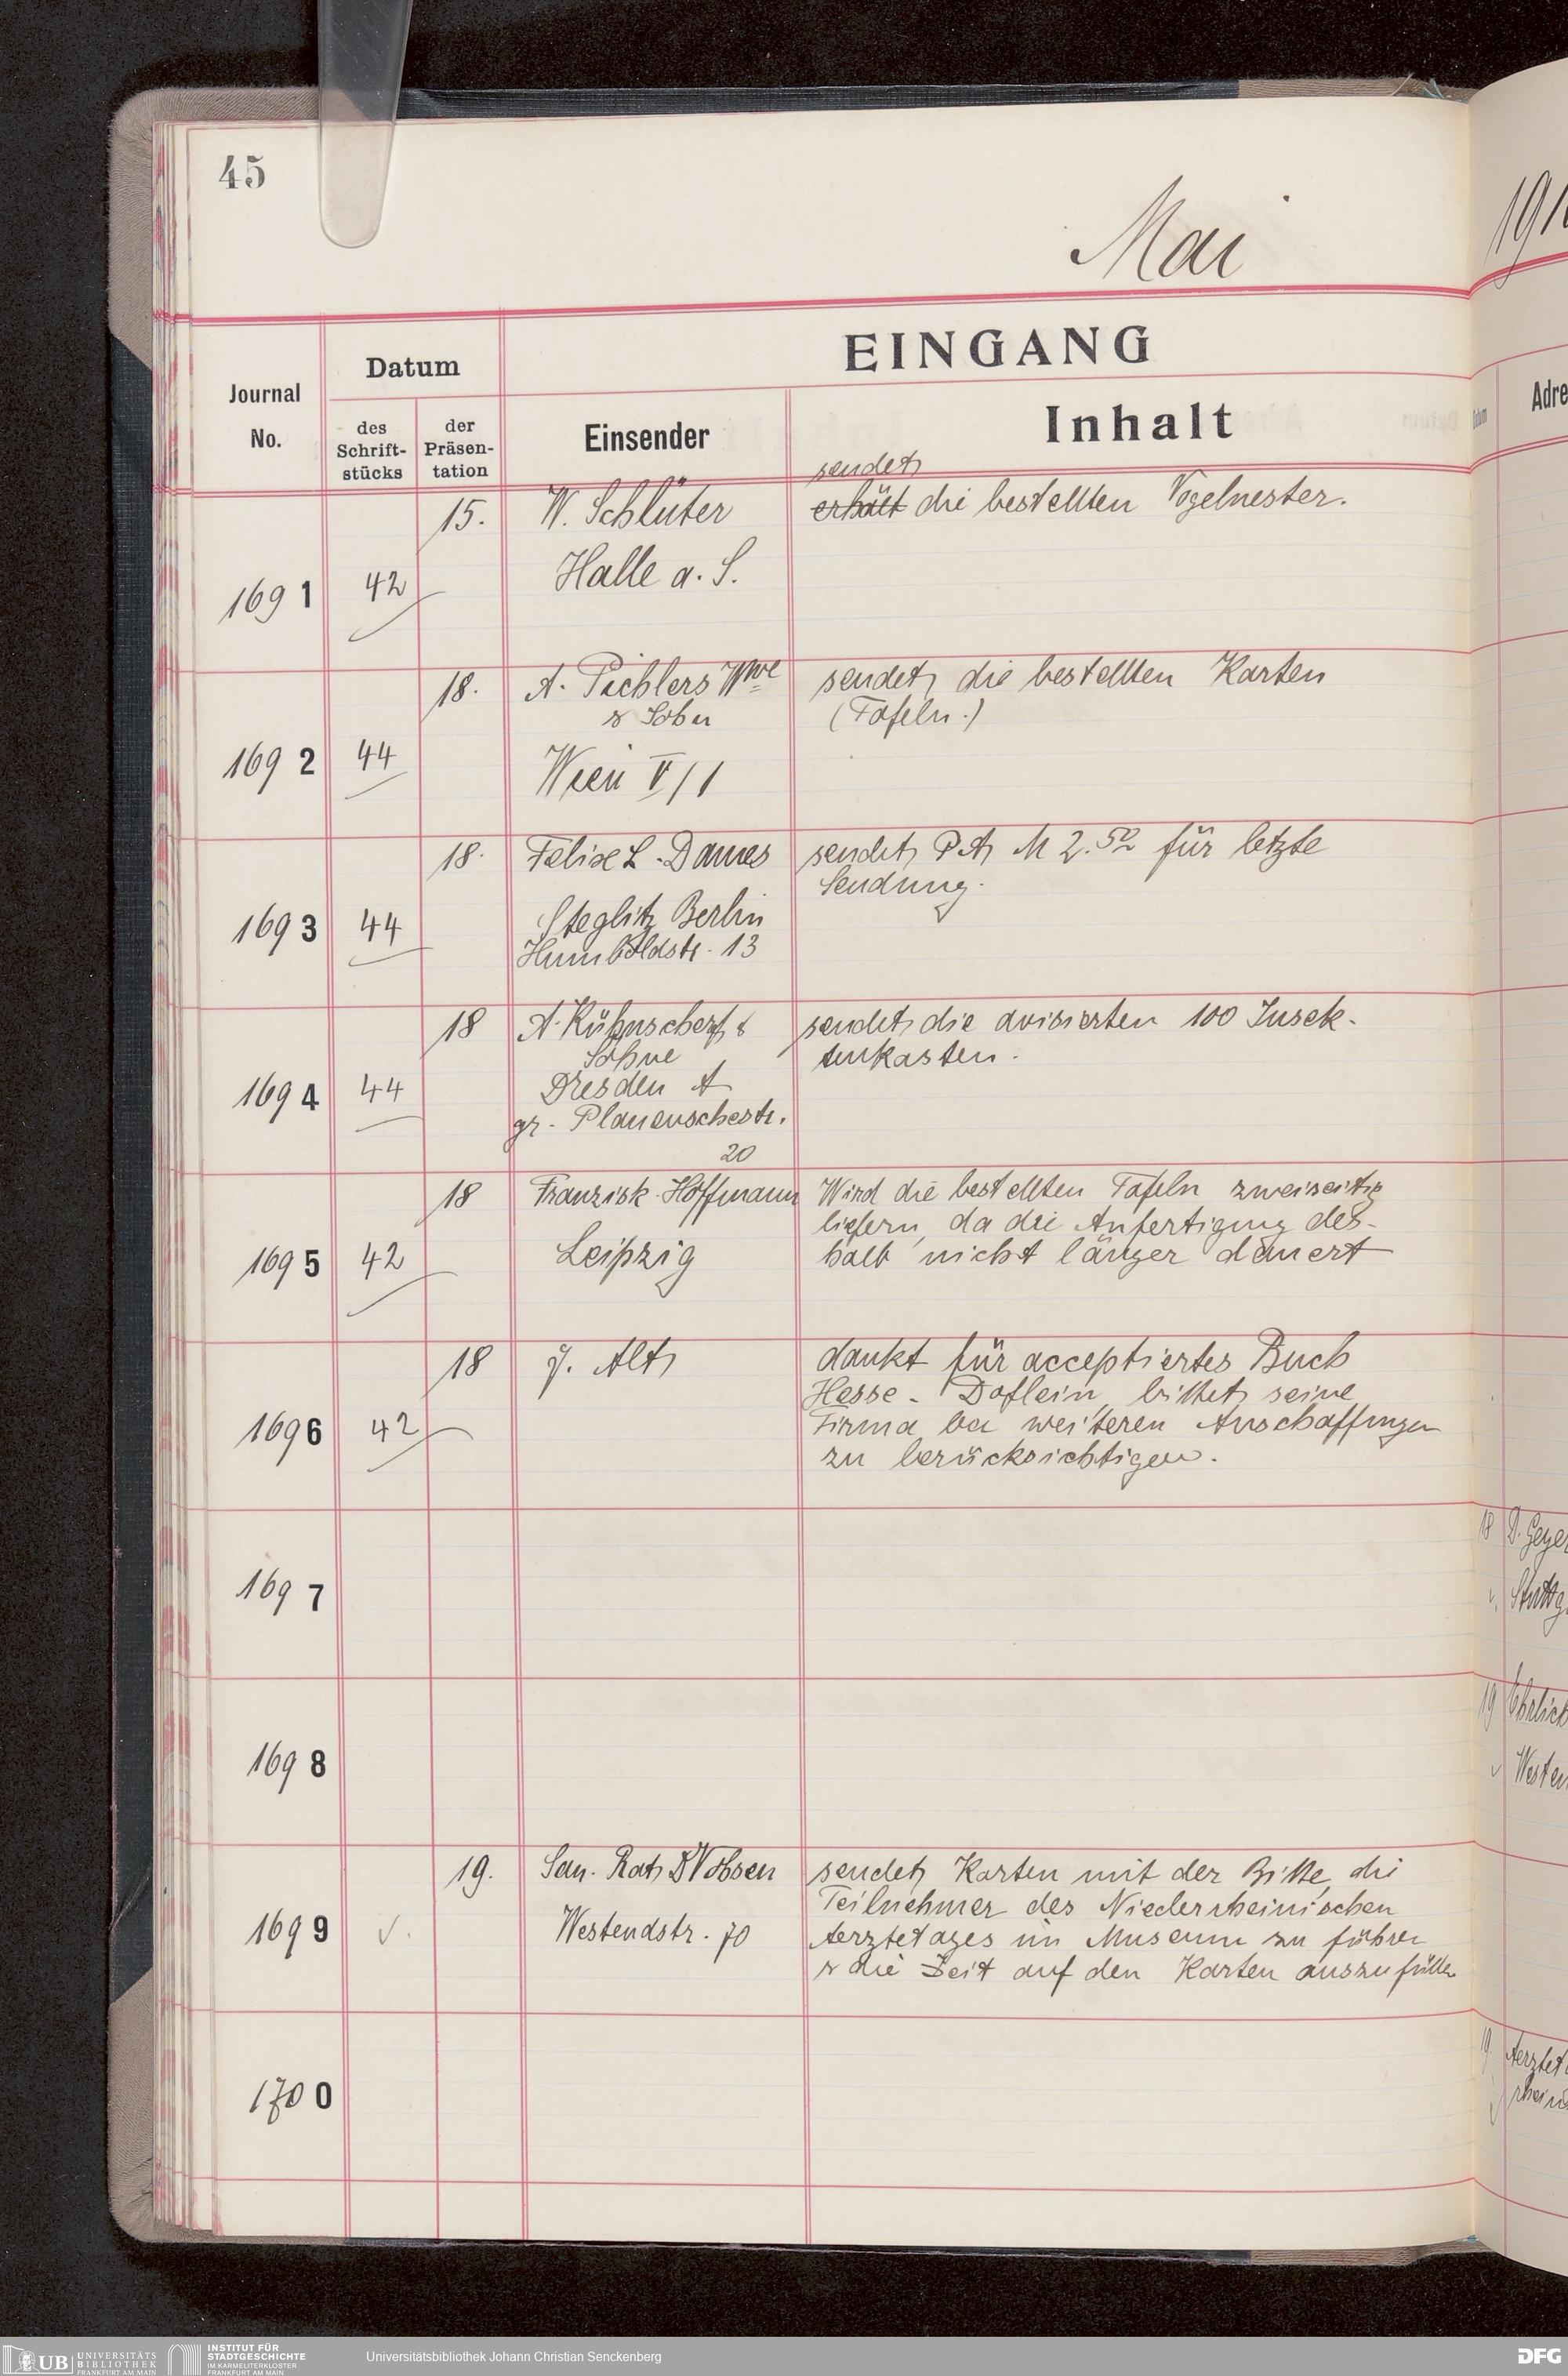 45
Mai
191
EINGANG
Journal
No.
Datum
des
Schrift-
stücks
der
Präsen-
tation
Einsender
Inhalt
Adre
1691
42
15.
W. Schlüter
Halle a. S.
sendet
erhält die bestellten Vogelnester.
1692
44
18.
A. Pichlers Wwe
& Sohn
Wien V/1
sendet die bestellten Karten
(Tafeln.)
1693
44
18.
Felix L. Dames
Steglitz Berlin
Humboldstr. 13
sendet P.A. M 2.50 für letzte
Sendung.
1694
44
18
A. Kühnscherf &
Söhne
Dresden A
gr. Plauenschestr.
20
sendet die avisierten 100 Insek-
tenkasten.
1695
42
18
Franzisk. Hoffmann
Leipzig
Wird die bestellten Tafeln zweiseitig
liefern, da die Anfertigung des-
halb nicht länger dauert
1696
42
18
J. Alt
dankt für acceptiertes Buch
Hesse - Doflein, bittet seine
Firma bei weiteren Anschaffungen
zu berücksichtigen.
1697
18
D. Geyer
Stuttg
1698
19
Ehrlich
Westen
1699
19.
San. Rat Dr Vohsen
Westendstr. 70
sendet Karten mit der Bitte, die
Teilnehmer des Niederrheinischen
Aerztetages im Museum zu führen
& die Zeit auf den Karten auszufüllen
1700
19.
Aerztet
rhein
UB UNIVERSITÄTS
BIBLIOTHEK
FRANKFURT AM MAIN
INSTITUT FÜR
STADTGESCHICHTE
IM KARMELITERKLOSTER
FRANKFURT AM MAIN
Universitätsbibliothek Johann Christian Senckenberg
DFG